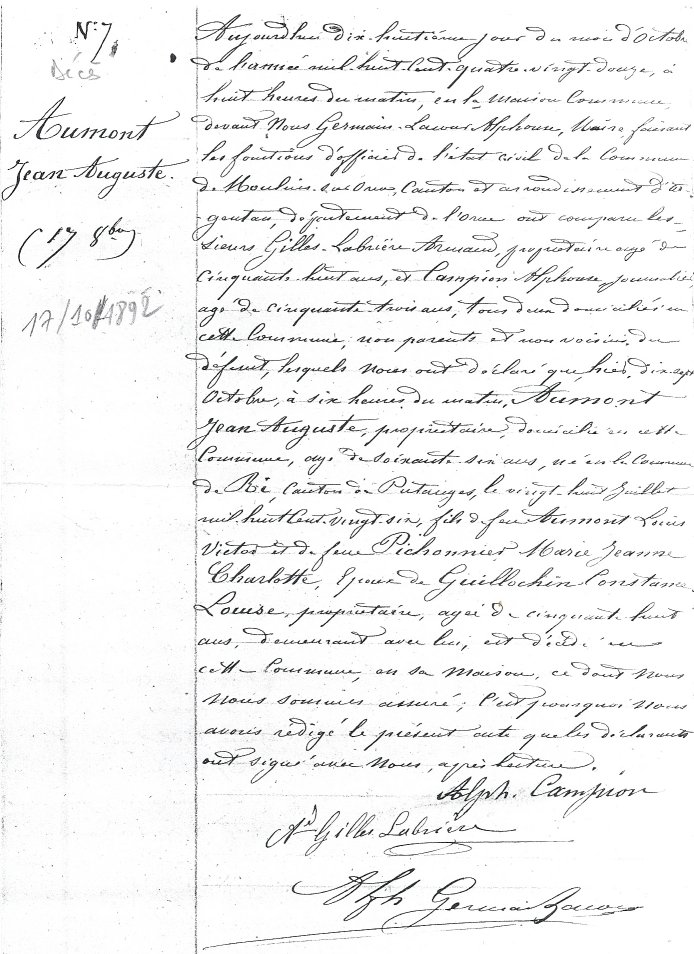 N° 7
Décès
Aumont
Jean Auguste.
(17 8bre)
17/10/1892
Aujourd'hui dix-huitième jour du mois d'Octobre
de l'année mil huit cent quatre-vingt-douze, à
huit heures du matin, en la Maison Commune,
devant Nous Germain-Lacour Alphonse, Maire faisant
les fonctions d'officier de l'état civil de la Commune
de Moulins-sur-Orne, Canton et arrondissement d'Ar-
gentan, département de l'Orne ont comparu les
sieurs Gilles-Labrière Armand, propriétaire agé de
cinquante huit ans, et Campion Alphonse, journalier
agé de cinquante trois ans, tous deux domiciliés en
cette Commune, non parents et non voisins du
défunt, lesquels nous ont déclaré que, hier, dix-sept
Octobre, à six heures du matin, Aumont
Jean Auguste, propriétaire, domicilié en cette
Commune, agé de soixante-six ans, né en la Commune
de Ri, Canton de Putanges, le vingt huit Juillet
mil huit cent vingt-six, fils de feu Aumont Louis
Victor et de feue Pichonnier Marie Jeanne
Charlotte, Epoux de Guillochin Constance
Louise, propriétaire, agée de cinquante huit
ans, demeurant avec lui, est décédé en
cette Commune, en sa maison, ce dont Nous
nous sommes assuré; C'est pourquoi Nous
avons rédigé le présent acte que les déclarants
ont signé avec Nous, après lecture.
Alph. Campion
Ad Gilles Labrière
Alph Germain Lacour